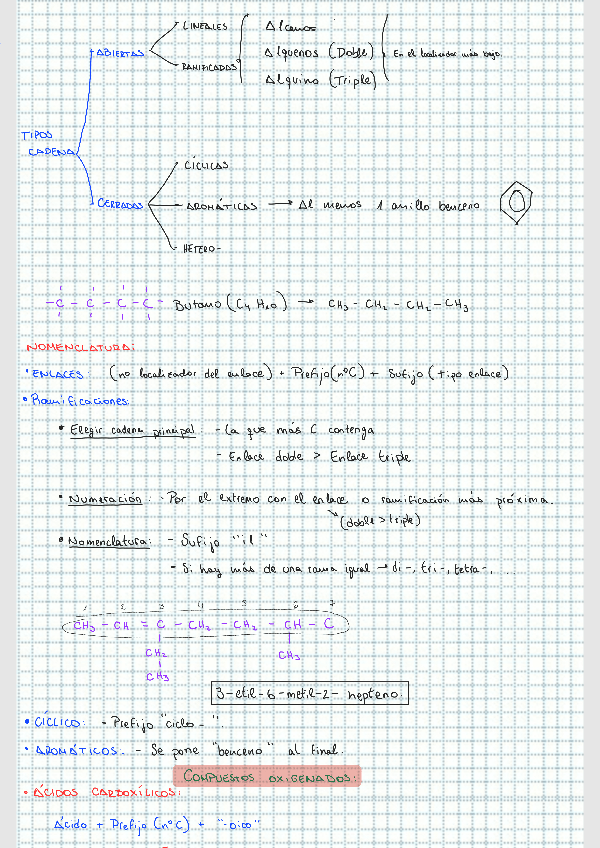 LINEALES
Alcanos
ABIERTAS
Alquenos (Doble)
En el localizador más bajo.
RAMIFICADAS
Alquino (Triple)
TIPOS
CADENA
CÍCLICAS
CERRADAS
AROMÁTICAS → Al menos 1 anillo benceno
HETERO-
-C - C - C - C- Butano (C4 H10) → CH3 - CH2 - CH2 - CH3
NOMENCLATURA:
• ENLACES: (no localizador del enlace) + Prefijo (nºC) + Sufijo (tipo enlace)
• Ramificaciones:
• Elegir cadena principal: - La que más C contenga
- Enlace doble > Enlace triple
• Numeración: - Por el extremo con el enlace o ramificación más próxima.
(doble > triple)
• Nomenclatura: - Sufijo "il"
- Si hay más de una rama igual → di-, tri-, tetra-, ...
1 2 3 4 5 6 7
CH3 - CH = C - CH2 - CH2 - CH - C
CH2 CH3
CH3
3-etil-6-metil-2- hepteno.
• CÍCLICO: - Prefijo "ciclo-".
• AROMÁTICOS. - Se pone "benceno" al final.
COMPUESTOS OXIGENADOS:
• ÁCIDOS CARBOXÍLICOS:
Ácido + Prefijo (nºC) + "-oico"